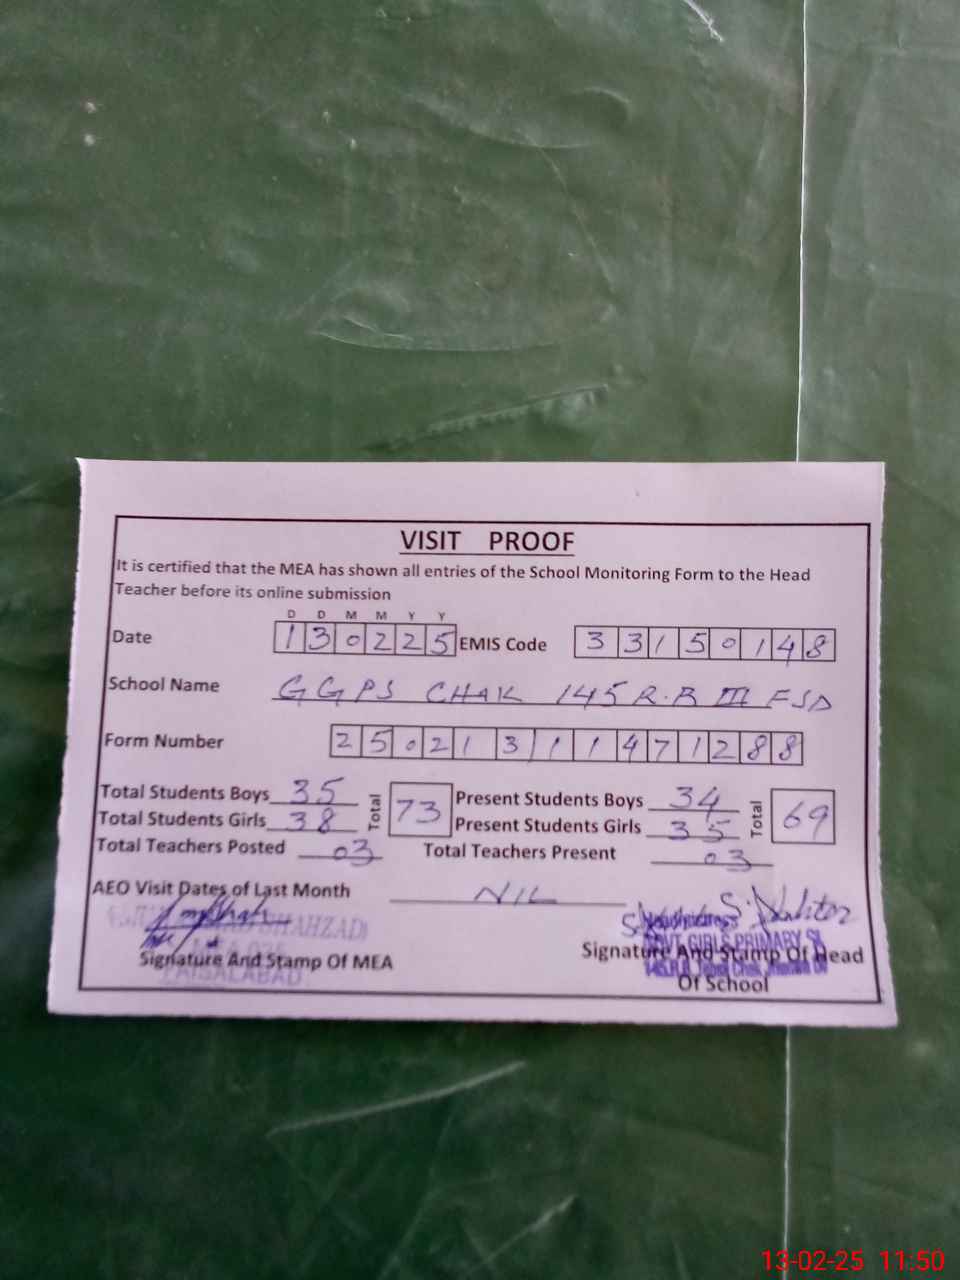 VISIT PROOF
It is certified that the MEA has shown all entries of the School Monitoring Form to the Head
Teacher before its online submission
D D M M Y Y
Date 130225 EMIS Code 33150148
School Name GGPS CHAK 145 R.B III FSD
Form Number 25021311471288
Total Students Boys 35 Total 73 Present Students Boys 34 Total 69
Total Students Girls 38 Present Students Girls 35
Total Teachers Posted 03 Total Teachers Present 03
AEO Visit Dates of Last Month NIL
SHAHZAD
FAISALABAD
Signature And Stamp Of MEA
Headmistress
GOVT. GIRLS PRIMARY
Signature And Stamp Of Head
Of School
13-02-25 11:50